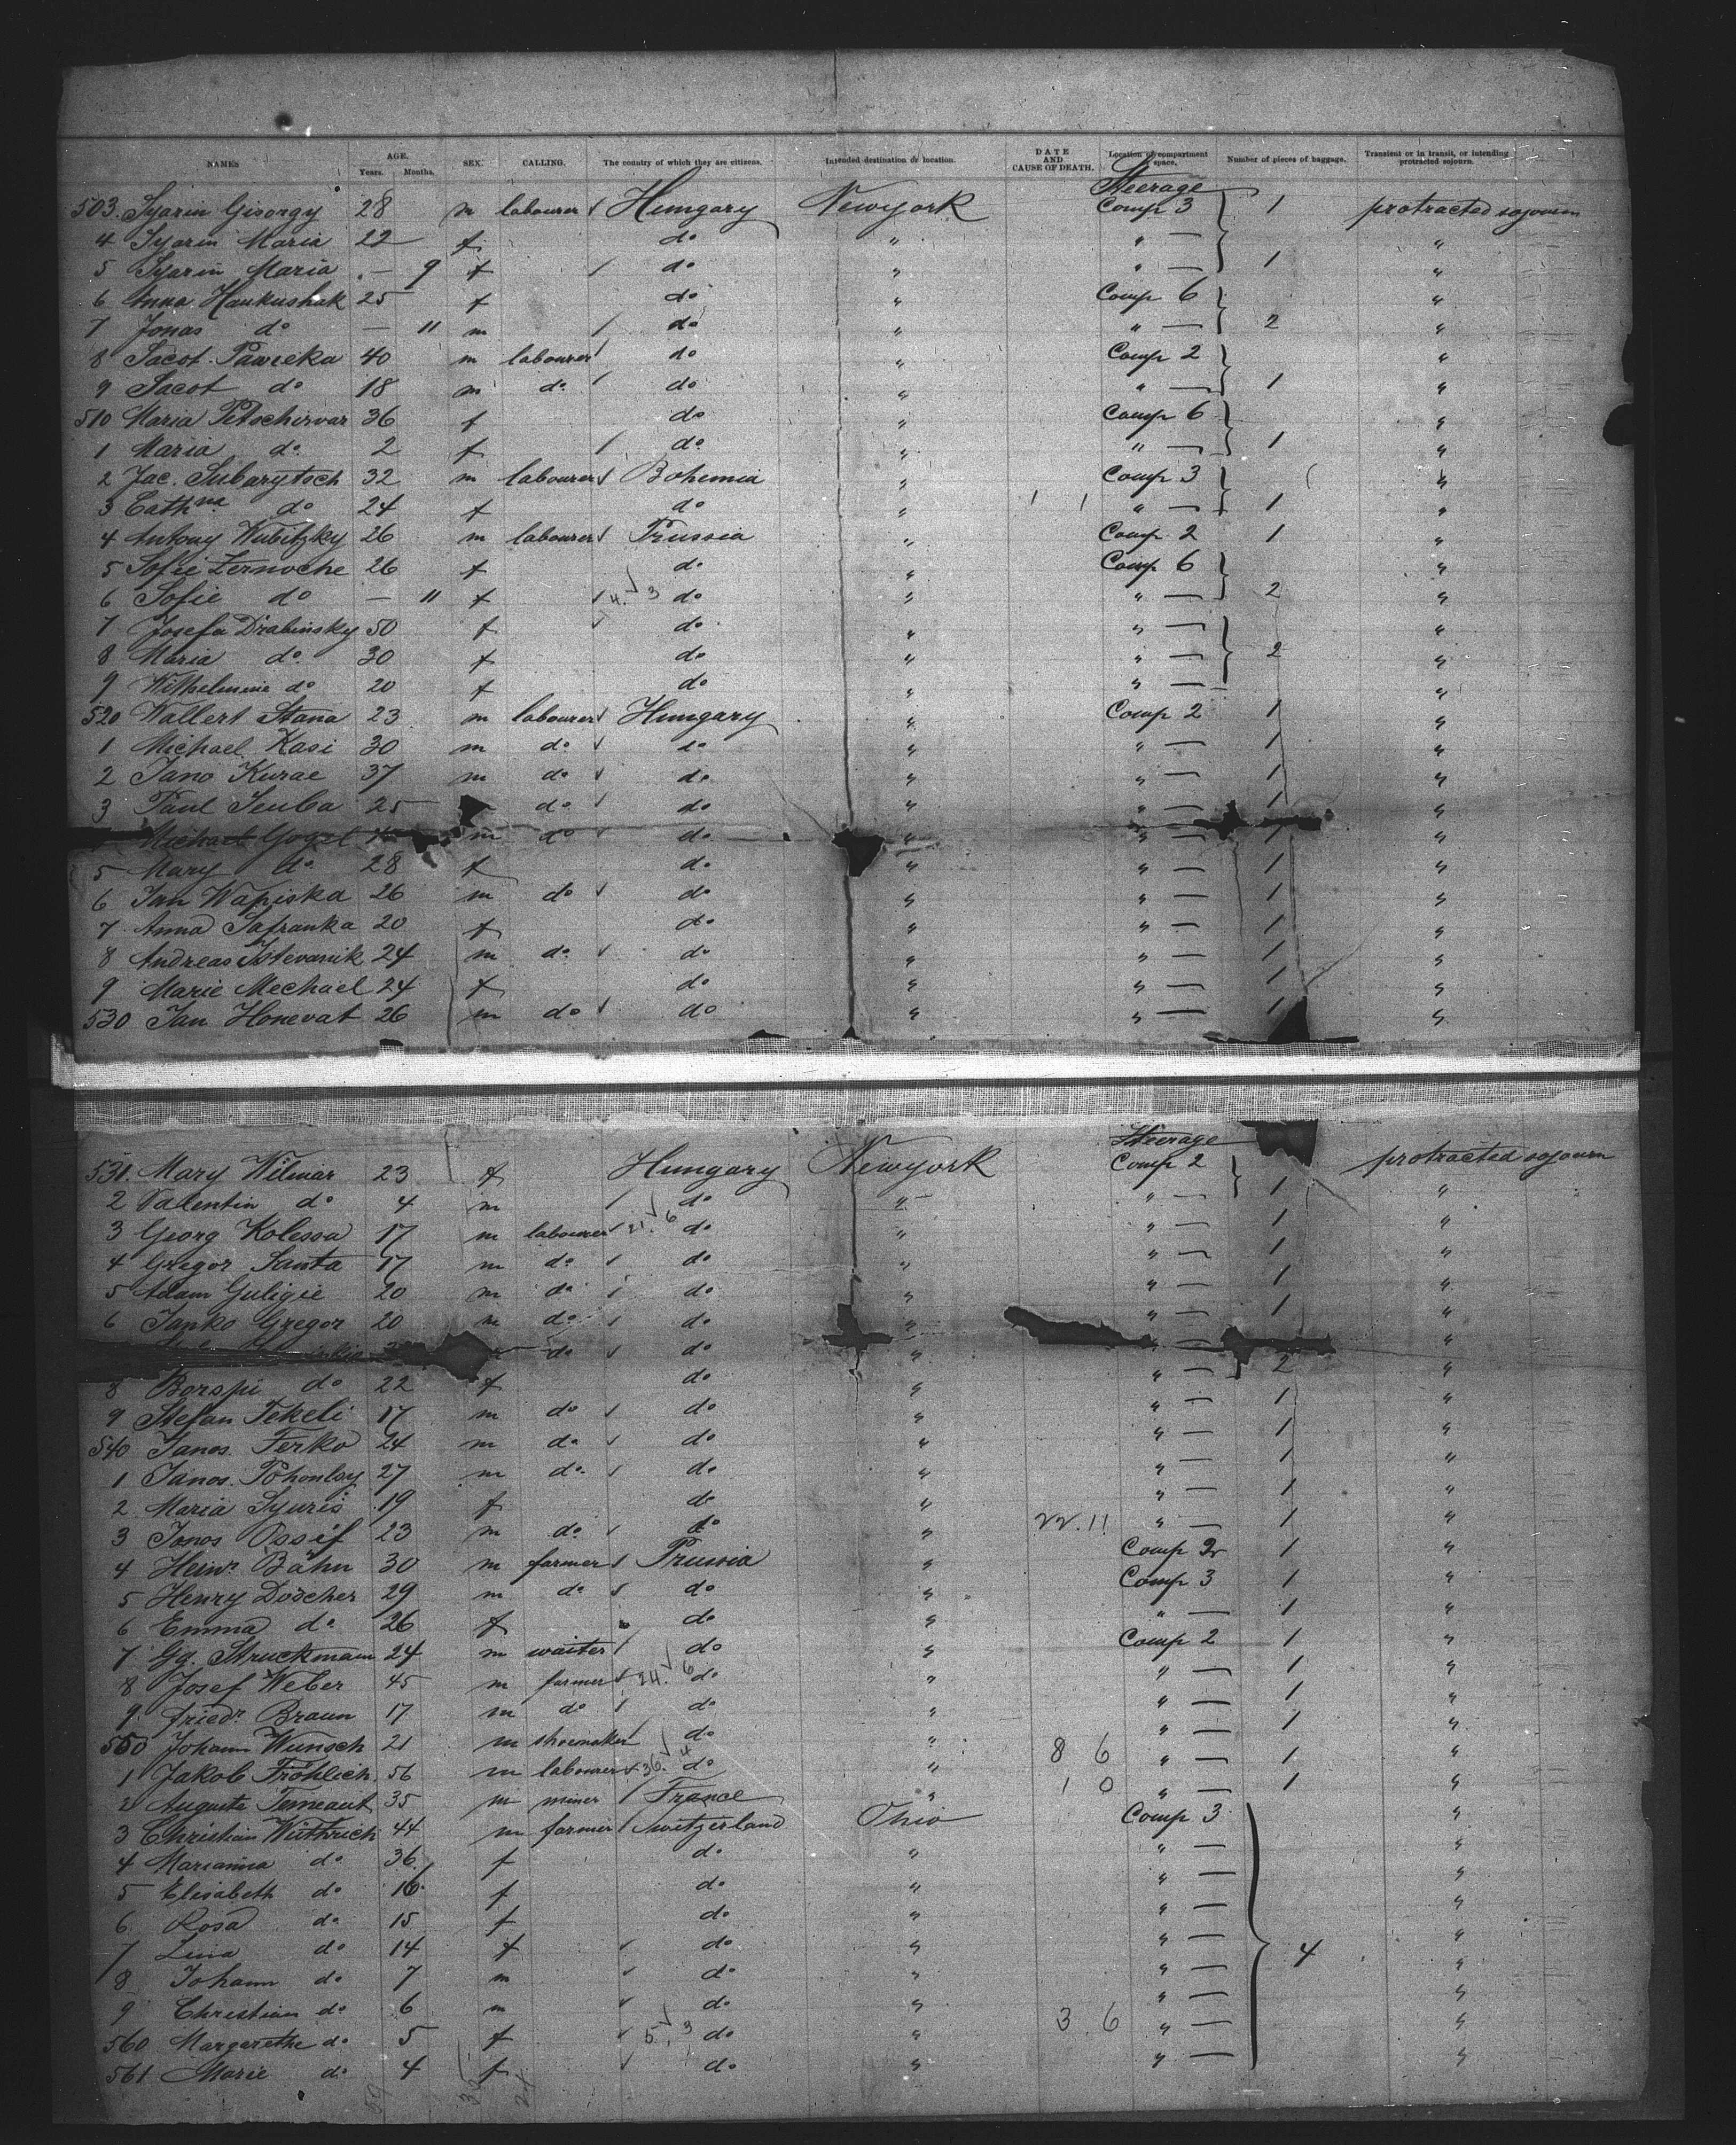 NAMES AGE. Years. Months. SEX. CALLING. The country of which they are citizens. Intended destination or location. DATE AND CAUSE OF DEATH. Location of compartment space. Number of pieces of baggage. Transient or in transit, or intending protracted sojourn.
Steerage
503. Syarin Gisorgy 28 m labourer Hungary Newyork Comp 3 1 protracted sojourn
4 Syarin Maria 22 f do " " — "
5 Syarin Maria — 9 f do " " — 1 "
6 Anna Haukushak 25 f do " Comp 6 "
7 Jonas do — 11 m do " " — 2 "
8 Jacot Pawreka 40 m labourer do " Comp 2 "
9 Jacot do 18 m do do " " — 1 "
510 Maria Petschirvar 36 f do " Comp 6 "
1 Maria do 2 f do " " — 1 "
2 Jac. Subarytsch 32 m labourer Bohemia " Comp 3 "
3 Cathna do 24 f do " " — 1 "
4 Antony Wubitzky 26 m labourer Prussia " Comp 2 1 "
5 Sofie Zernoche 26 f do " Comp 6 "
6 Sofie do — 11 f 4. 3 do " " — 2 "
7 Josefa Drabinsky 50 f do " " — "
8 Maria do 30 f do " " — 2 "
9 Wilhelmine do 20 f do " " — "
520 Wallert Stana 23 m labourer Hungary " Comp 2 1 "
1 Michael Kasi 30 m do do " " — 1 "
2 Jano Kurae 37 m do do " " — 1 "
3 Paul Senba 25 do do " " — 1 "
Michael Gogel m do do " " — 1 "
5 Mary do 28 f do " " — 1 "
6 Jan Wapiska 26 m do do " " — 1 "
7 Anna Safranka 20 f do " " — 1 "
8 Andreas Istevanik 24 m do do " " — 1 "
9 Marie Mechael 24 f do " " — 1 "
530 Jan Honevat 26 m do do " " — 1 "
Steerage
531. Mary Wilmar 23 f Hungary Newyork Comp 2 protracted sojourn
2 Valentin do 4 m do " " — 1 "
3 Georg Kolessa 17 m labourer 21. 6 do " " — 1 "
4 Gregor Santa 17 m do do " " — 1 "
5 Adam Guligie 20 m do do " " — 1 "
6 Janko Gregor 20 m do do " " — 1 "
do do " " — "
8 Borspi do 22 f do " " — 2 "
9 Stefan Tekeli 17 m do do " " — 1 "
540 Janos Ferko 24 m do do " " — 1 "
1 Janos Pohonlay 27 m do do " " — 1 "
2 Maria Syuris 19 f do " " — 1 "
3 Jonos Ossif 23 m do do " 22.11 " — 1 "
4 Heinr. Bahn 30 m farmer Prussia " Comp 2 1 "
5 Henry Döscher 29 m do do " Comp 3 1 "
6 Emma do 26 f do " " — 1 "
7 Gg. Struckmann 24 m waiter do " Comp 2 1 "
8 Josef Weber 45 m farmer 24. 6 do " " — 1 "
9 Friedr. Braun 17 m do do " " — 1 "
550 Johann Wunsch 21 m shoemaker do " " — 1 "
1 Jakob Fröhlich 56 m labourer 36. 4 do " 8 6 " — 1 "
2 Auguste Temeaut 35 m miner France " 1 0 " — 1 "
3 Christian Wüthrich 44 m farmer Switzerland Ohio Comp 3 "
4 Marianna do 36 f do " " — "
5 Elisabeth do 16 f do " " — "
6 Rosa do 15 f do " " — "
7 Lina do 14 f do " " — 4 "
8 Johann do 7 m do " " — "
9 Christian do 6 m do " " — "
560 Margarethe do 5 f 5. 3 do " 3 6 " — "
561 Marie do 4 f do " " — "